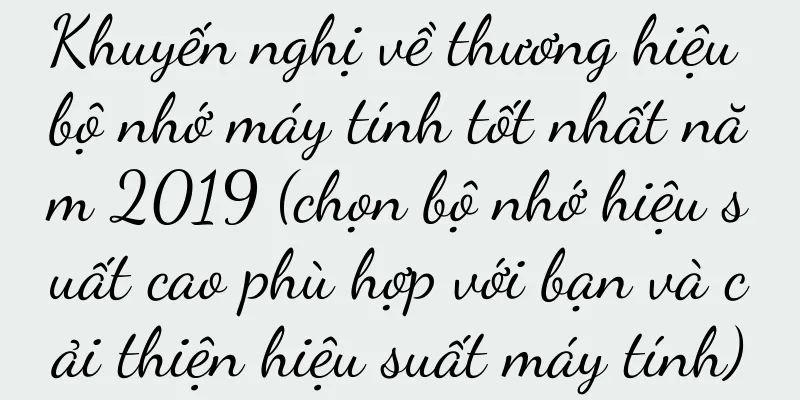 Khuyến nghị về thương hiệu
bộ nhớ máy tính tốt nhất nă
m 2019 (chọn bộ nhớ hiệu s
uất cao phù hợp với bạn và c
ải thiện hiệu suất máy tính)